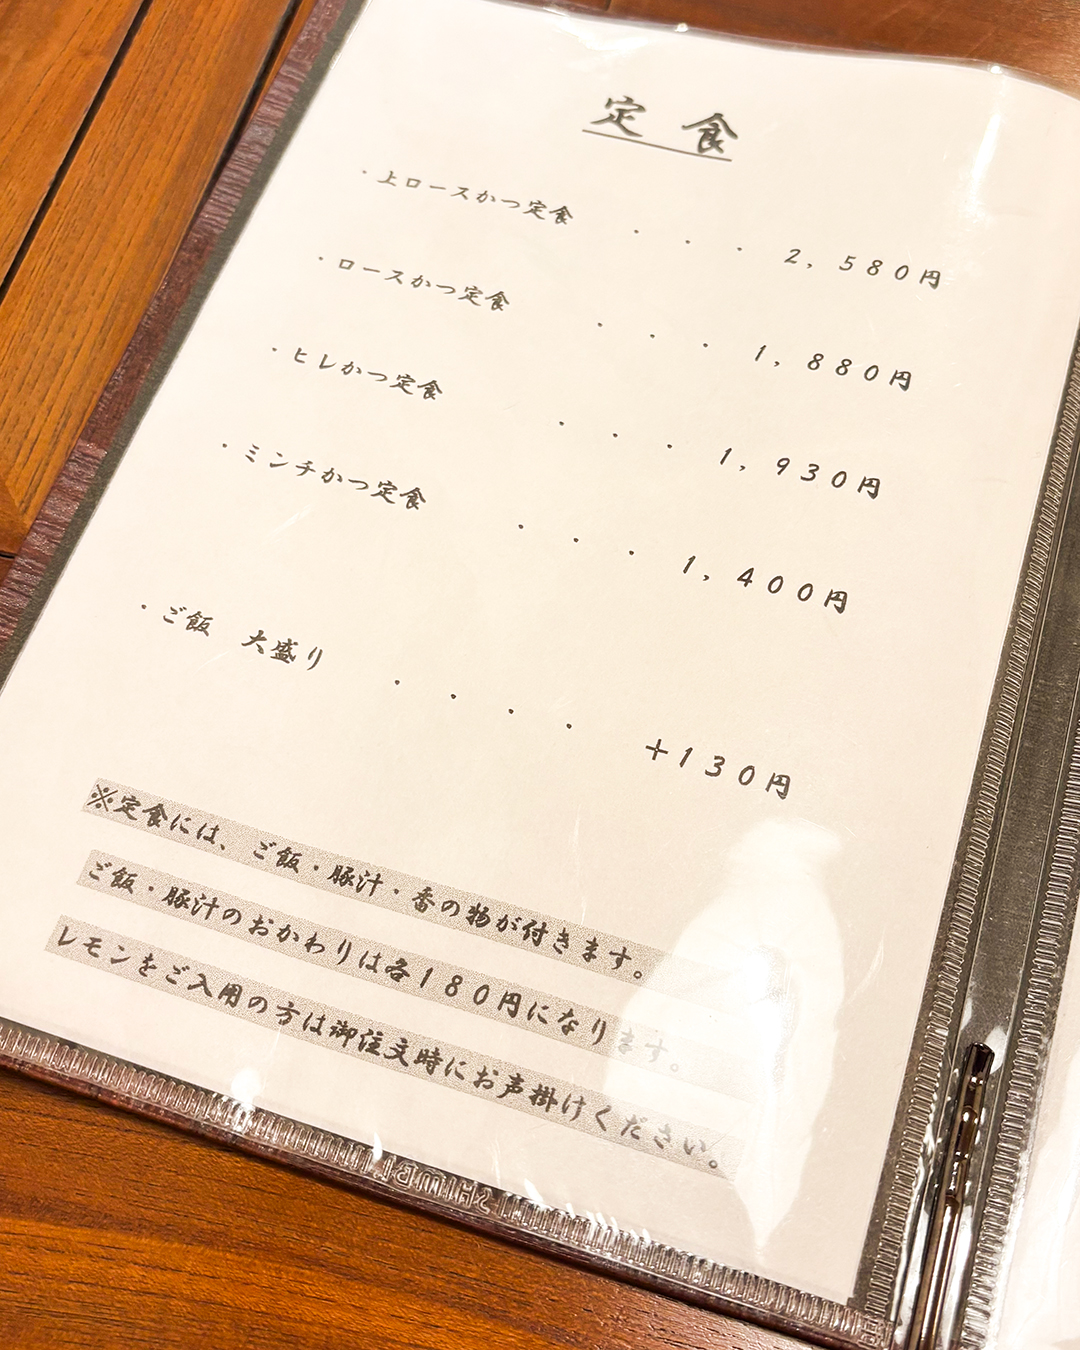 定食
・上ロースかつ定食 ・・・2,580円
・ロースかつ定食 ・・・1,880円
・ヒレかつ定食 ・・・1,930円
・ミンチかつ定食 ・・・1,400円
・ご飯 大盛り ・・・・ +130円
※定食には、ご飯・豚汁・香の物が付きます。
ご飯・豚汁のおかわりは各180円になります。
レモンをご入用の方は御注文時にお声掛けください。
SHIMBI